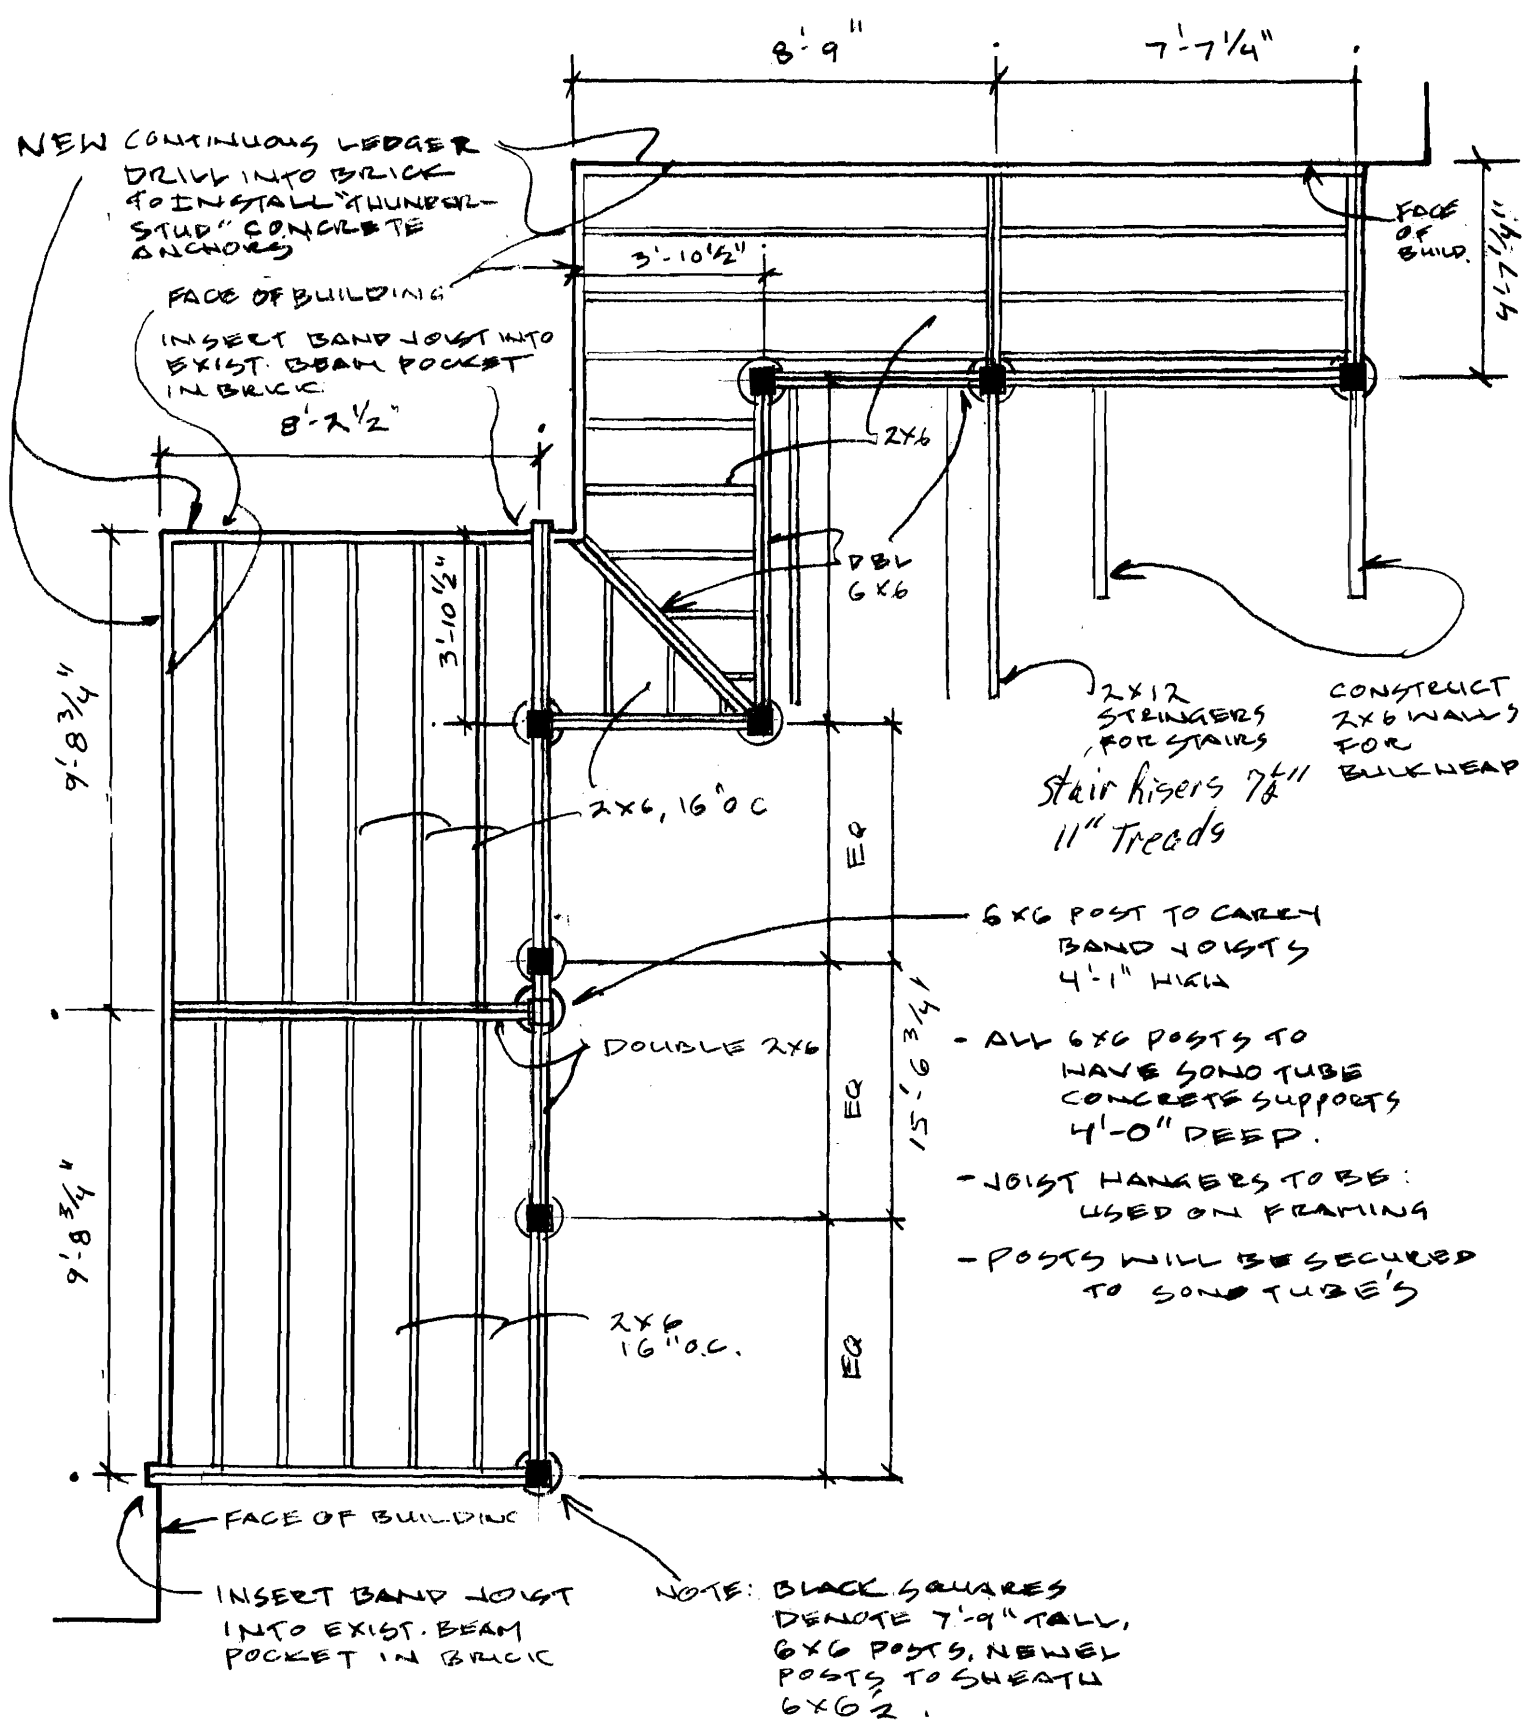 8'-9"
7'-7 1/4"
NEW CONTINUOUS LEDGER
DRILL INTO BRICK
TO INSTALL "THUNDER-
STUD" CONCRETE
ANCHORS
3'-10 1/2"
FACE
OF
BUILD.
4'-7 1/4"
FACE OF BUILDING
INSERT BAND JOIST INTO
EXIST. BEAM POCKET
IN BRICK
8'-2 1/2"
2X6
DBL
6X6
3'-10 1/2"
9'-8 3/4"
2X12
STRINGERS
FOR STAIRS
Stair Risers 7 1/2"
11" Treads
CONSTRUCT
2X6 WALLS
FOR
BULKHEAD
2X6, 16" O C
EQ
6X6 POST TO CARRY
BAND JOISTS
4'-1" HIGH
DOUBLE 2X6
EQ
15'-6 3/4"
- ALL 6X6 POSTS TO
HAVE SONO TUBE
CONCRETE SUPPORTS
4'-0" DEEP.
- JOIST HANGERS TO BE:
USED ON FRAMING
- POSTS WILL BE SECURED
TO SONO TUBE'S
9'-8 3/4"
2X6
16" O.C.
EQ
FACE OF BUILDING
INSERT BAND JOIST
INTO EXIST. BEAM
POCKET IN BRICK
NOTE: BLACK SQUARES
DENOTE 7'-9" TALL,
6X6 POSTS, NEWEL
POSTS TO SHEATH
6X6'S.